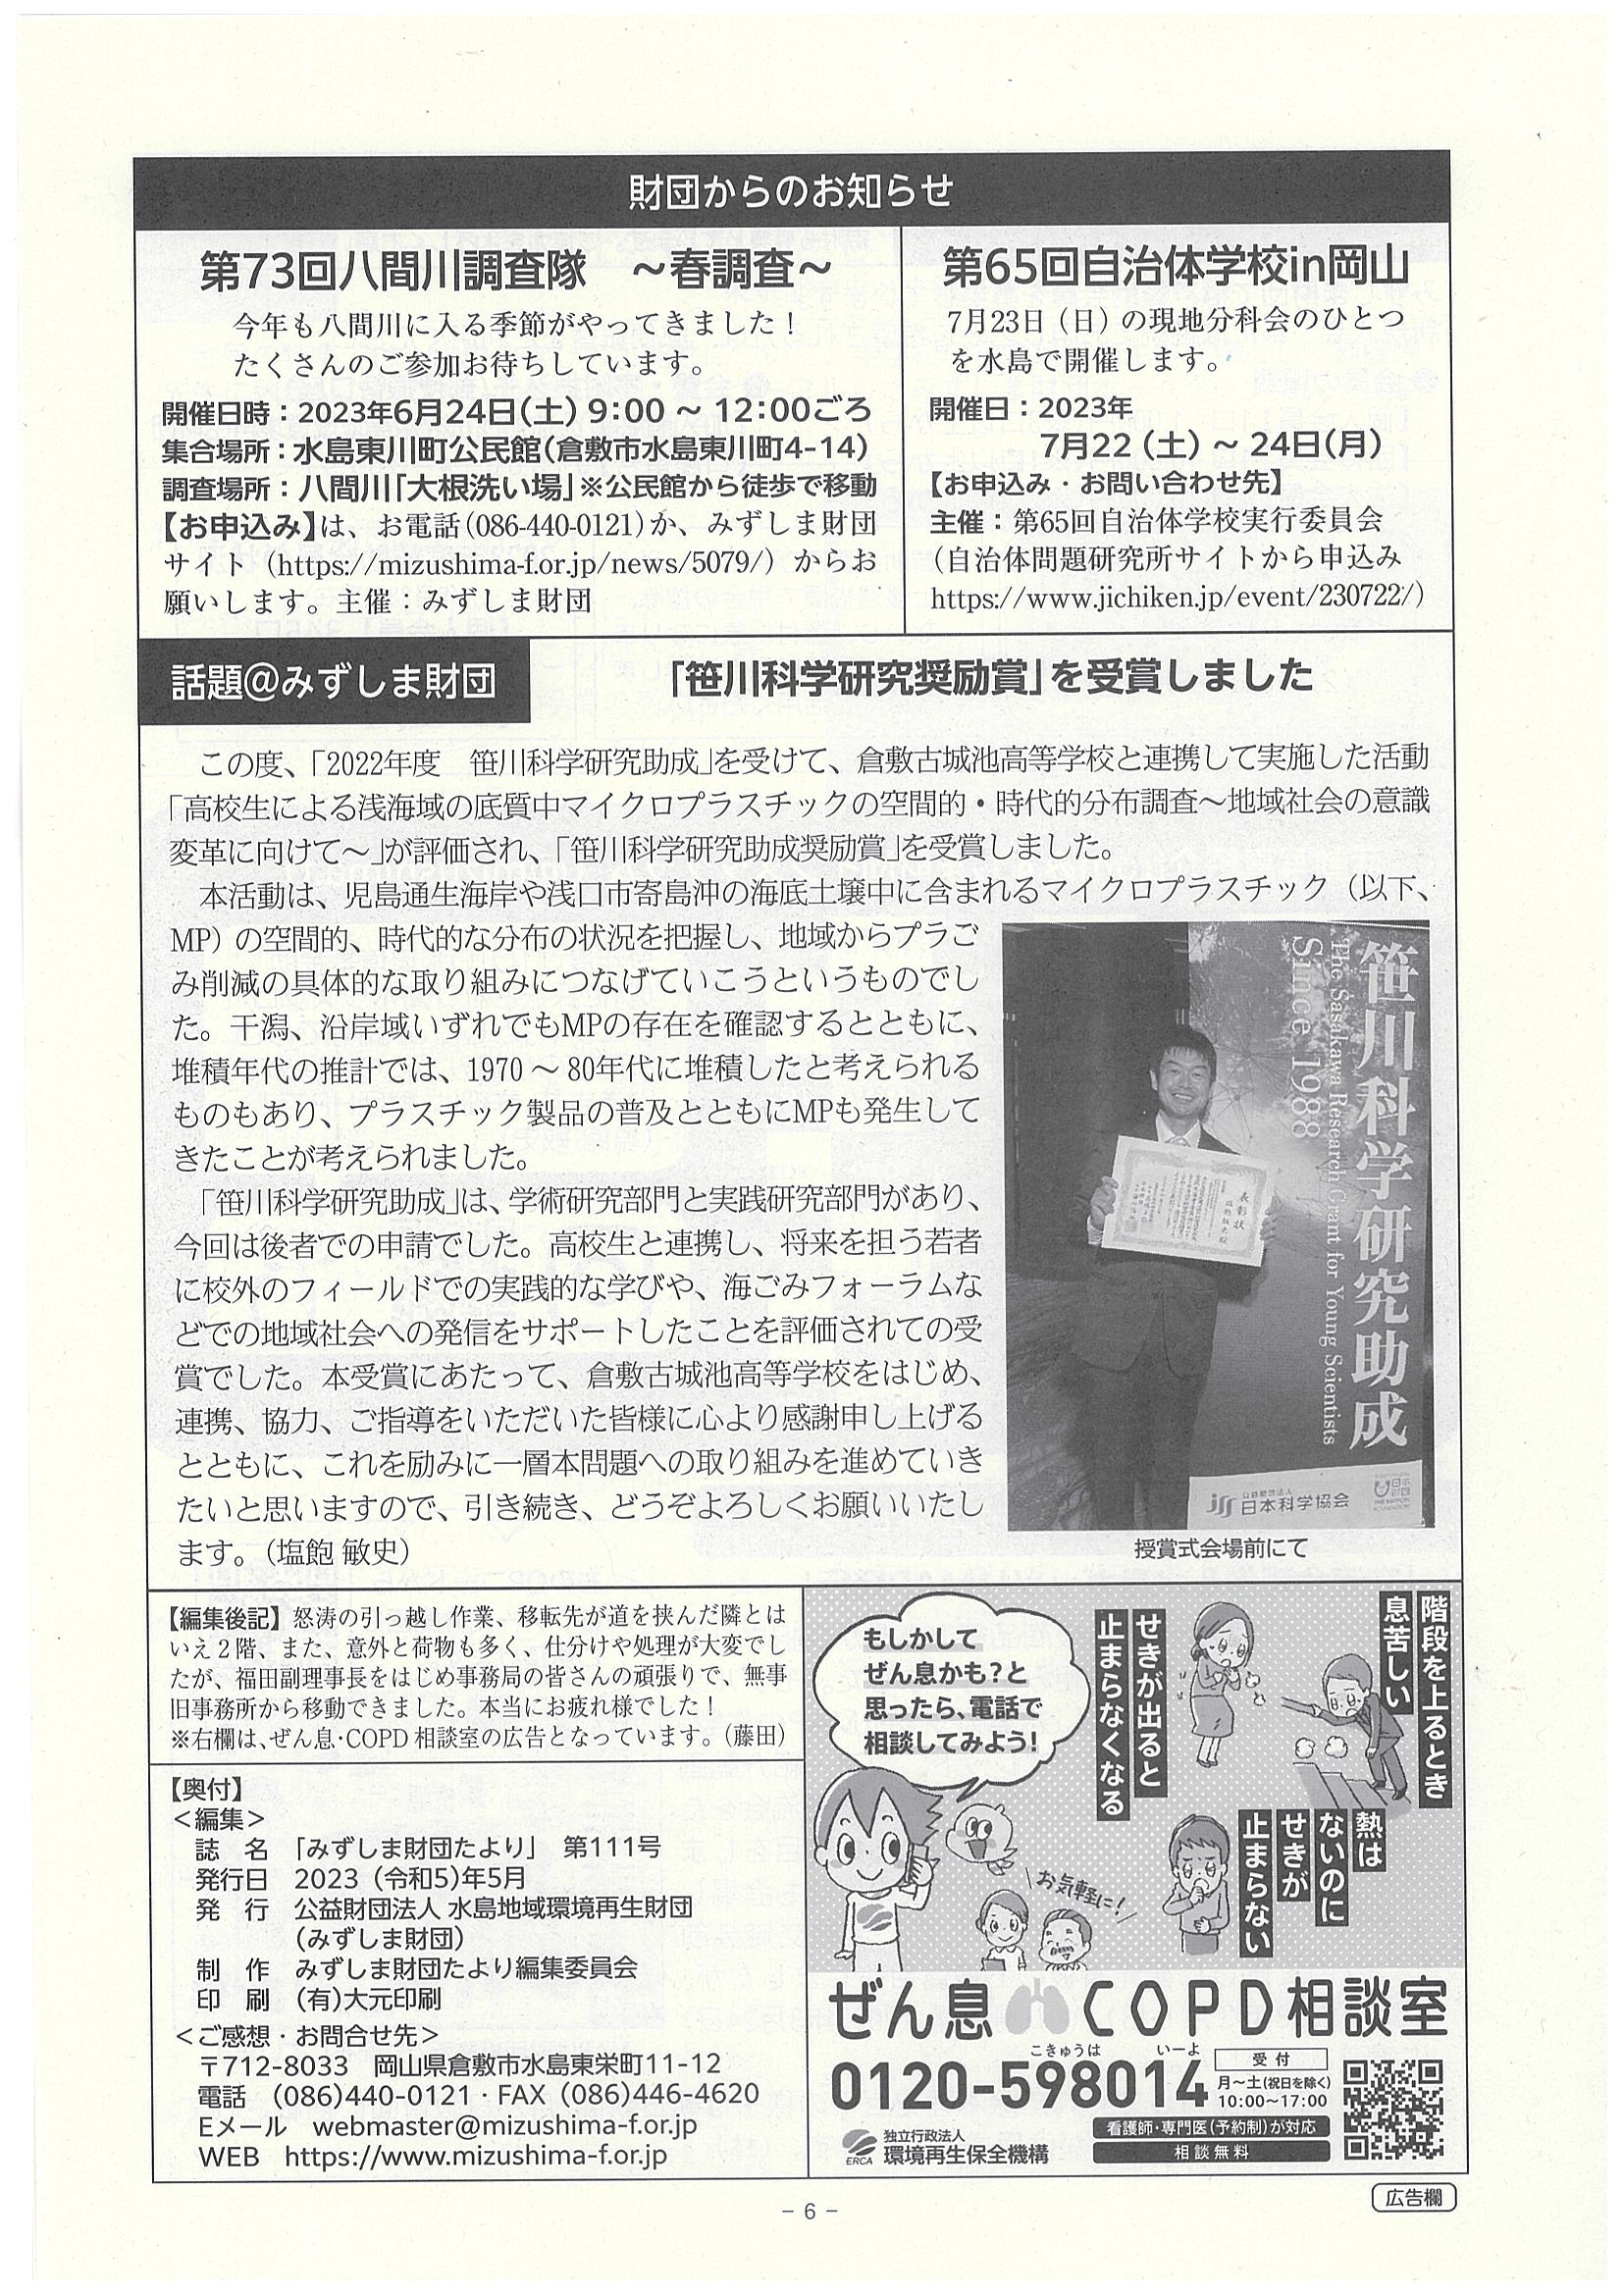 財団からのお知らせ
第73回八間川調査隊　～春調査～
今年も八間川に入る季節がやってきました！
たくさんのご参加お待ちしています。
開催日時：2023年6月24日(土) 9:00 ～ 12:00ごろ
集合場所：水島東川町公民館(倉敷市水島東川町4-14)
調査場所：八間川「大根洗い場」※公民館から徒歩で移動
【お申込み】は、お電話(086-440-0121)か、みずしま財団
サイト（https://mizushima-f.or.jp/news/5079/）からお
願いします。主催：みずしま財団
第65回自治体学校in岡山
7月23日（日）の現地分科会のひとつ
を水島で開催します。
開催日：2023年
7月22（土）～ 24日(月)
【お申込み・お問い合わせ先】
主催：第65回自治体学校実行委員会
（自治体問題研究所サイトから申込み
https://www.jichiken.jp/event/230722/）
話題@みずしま財団
「笹川科学研究奨励賞」を受賞しました
この度、「2022年度　笹川科学研究助成」を受けて、倉敷古城池高等学校と連携して実施した活動
「高校生による浅海域の底質中マイクロプラスチックの空間的・時代的分布調査～地域社会の意識
変革に向けて～」が評価され、「笹川科学研究助成奨励賞」を受賞しました。
本活動は、児島通生海岸や浅口市寄島沖の海底土壌中に含まれるマイクロプラスチック（以下、
MP）の空間的、時代的な分布の状況を把握し、地域からプラご
み削減の具体的な取り組みにつなげていこうというものでし
た。干潟、沿岸域いずれでもMPの存在を確認するとともに、
堆積年代の推計では、1970 ～ 80年代に堆積したと考えられる
ものもあり、プラスチック製品の普及とともにMPも発生して
きたことが考えられました。
「笹川科学研究助成」は、学術研究部門と実践研究部門があり、
今回は後者での申請でした。高校生と連携し、将来を担う若者
に校外のフィールドでの実践的な学びや、海ごみフォーラムな
どでの地域社会への発信をサポートしたことを評価されての受
賞でした。本受賞にあたって、倉敷古城池高等学校をはじめ、
連携、協力、ご指導をいただいた皆様に心より感謝申し上げる
とともに、これを励みに一層本問題への取り組みを進めていき
たいと思いますので、引き続き、どうぞよろしくお願いいたし
ます。（塩飽 敏史）
笹川科学研究助成
The Sasakawa Research Grant for Young Scientists
Since 1988
表彰状
公益財団法人
日本科学協会
授賞式会場前にて
【編集後記】怒涛の引っ越し作業、移転先が道を挟んだ隣とは
いえ２階、また、意外と荷物も多く、仕分けや処理が大変でし
たが、福田副理事長をはじめ事務局の皆さんの頑張りで、無事
旧事務所から移動できました。本当にお疲れ様でした！
※右欄は、ぜん息・COPD 相談室の広告となっています。（藤田）
【奥付】
＜編集＞
誌　名　「みずしま財団たより」　第111号
発行日　2023（令和5)年5月
発　行　公益財団法人 水島地域環境再生財団
(みずしま財団)
制　作　みずしま財団たより編集委員会
印　刷　(有)大元印刷
＜ご感想・お問合せ先＞
〒712-8033　岡山県倉敷市水島東栄町11-12
電話　(086)440-0121・FAX（086)446-4620
Eメール　webmaster@mizushima-f.or.jp
WEB　https://www.mizushima-f.or.jp
もしかして
ぜん息かも？と
思ったら、電話で
相談してみよう！
せきが出ると
止まらなくなる
階段を上るとき
息苦しい
熱は
ないのに
せきが
止まらない
お気軽に！
ぜん息 COPD相談室
こきゅうは　いーよ
0120-598014
受付
月～土(祝日を除く)
10:00～17:00
看護師・専門医(予約制)が対応
相談無料
ERCA
独立行政法人
環境再生保全機構
広告欄
- 6 -